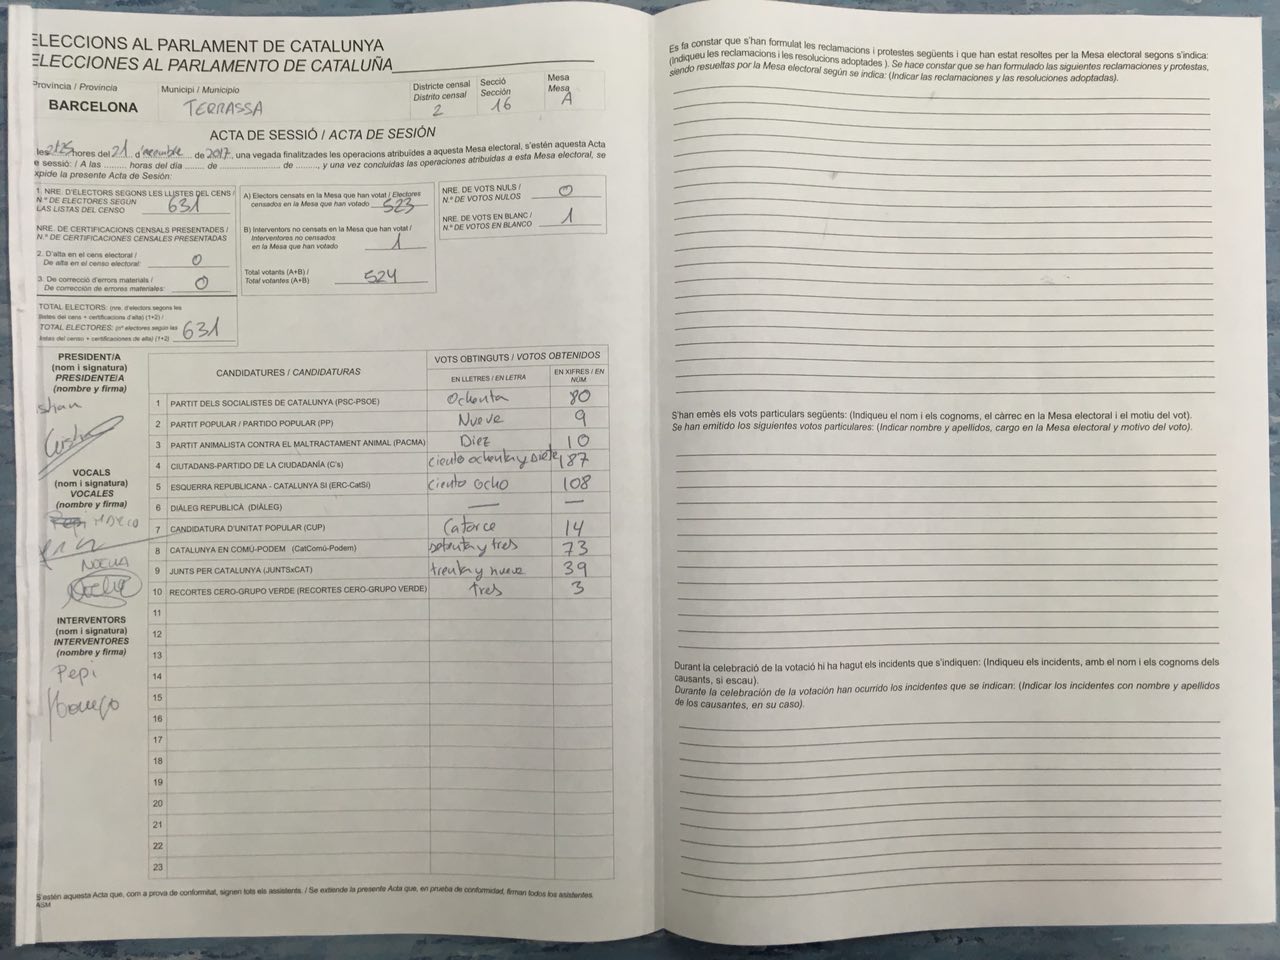 ELECCIONS AL PARLAMENT DE CATALUNYA
ELECCIONES AL PARLAMENTO DE CATALUÑA
Provincia / Província
BARCELONA
Municipi / Municipio
TERRASSA
Districte censal
Distrito censal
2
Secció
Sección
16
Mesa
Mesa
A
ACTA DE SESSIÓ / ACTA DE SESIÓN
les 21:25 hores del 21 de 2017, una vegada finalitzades les operacions atribuïdes a aquesta Mesa electoral, s'estén aquesta Acta
e sessió: / A las ......... horas del día ...... de ........................ de ........, y una vez concluidas las operaciones atribuidas a esta Mesa electoral, se
xpide la presente Acta de Sesión:
1. NRE. D'ELECTORS SEGONS LES LLISTES DEL CENS /
N.º DE ELECTORES SEGÚN
LAS LISTAS DEL CENSO 631
NRE. DE CERTIFICACIONS CENSALS PRESENTADES /
N.º DE CERTIFICACIONES CENSALES PRESENTADAS
2. D'alta en el cens electoral /
De alta en el censo electoral: 0
3. De correcció d'errors materials /
De corrección de errores materiales: 0
TOTAL ELECTORS: (nre. d'electors segons les
llistes del cens + certificacions d'alta) (1+2) /
TOTAL ELECTORES: (nº electores según las
listas del censo + certificaciones de alta) (1+2) 631
A) Electors censats en la Mesa que han votat / Electores
censados en la Mesa que han votado 523
B) Interventors no censats en la Mesa que han votat /
Interventores no censados
en la Mesa que han votado 1
Total votants (A+B) /
Total votantes (A+B) 524
NRE. DE VOTS NULS /
N.º DE VOTOS NULOS 0
NRE. DE VOTS EN BLANC /
N.º DE VOTOS EN BLANCO 1
PRESIDENT/A
(nom i signatura)
PRESIDENTE/A
(nombre y firma)
VOCALS
(nom i signatura)
VOCALES
(nombre y firma)
NOELIA
INTERVENTORS
(nom i signatura)
INTERVENTORES
(nombre y firma)
Pepi
CANDIDATURES / CANDIDATURAS
VOTS OBTINGUTS / VOTOS OBTENIDOS
EN LLETRES / EN LETRA
EN XIFRES / EN NÚM
1 PARTIT DELS SOCIALISTES DE CATALUNYA (PSC-PSOE) Ochenta 80
2 PARTIT POPULAR / PARTIDO POPULAR (PP) Nueve 9
3 PARTIT ANIMALISTA CONTRA EL MALTRACTAMENT ANIMAL (PACMA) Diez 10
4 CIUTADANS-PARTIDO DE LA CIUDADANÍA (C's) ciento ochenta y siete 187
5 ESQUERRA REPUBLICANA - CATALUNYA SÍ (ERC-CatSí) ciento ocho 108
6 DIÀLEG REPUBLICÀ (DIÀLEG) — —
7 CANDIDATURA D'UNITAT POPULAR (CUP) Catorce 14
8 CATALUNYA EN COMÚ-PODEM (CatComú-Podem) setenta y tres 73
9 JUNTS PER CATALUNYA (JUNTSxCAT) treinta y nueve 39
10 RECORTES CERO-GRUPO VERDE (RECORTES CERO-GRUPO VERDE) tres 3
11
12
13
14
15
16
17
18
19
20
21
22
23
S'estén aquesta Acta que, com a prova de conformitat, signen tots els assistents. / Se extiende la presente Acta que, en prueba de conformidad, firman todos los asistentes.
ASM
Es fa constar que s'han formulat les reclamacions i protestes següents i que han estat resoltes per la Mesa electoral segons s'indica:
(Indiqueu les reclamacions i les resolucions adoptades ). Se hace constar que se han formulado las siguientes reclamaciones y protestas,
siendo resueltas por la Mesa electoral según se indica: (Indicar las reclamaciones y las resoluciones adoptadas).
S'han emès els vots particulars següents: (Indiqueu el nom i els cognoms, el càrrec en la Mesa electoral i el motiu del vot).
Se han emitido los siguientes votos particulares: (Indicar nombre y apellidos, cargo en la Mesa electoral y motivo del voto).
Durant la celebració de la votació hi ha hagut els incidents que s'indiquen: (Indiqueu els incidents, amb el nom i els cognoms dels
causants, si escau).
Durante la celebración de la votación han ocurrido los incidentes que se indican: (Indicar los incidentes con nombre y apellidos
de los causantes, en su caso).